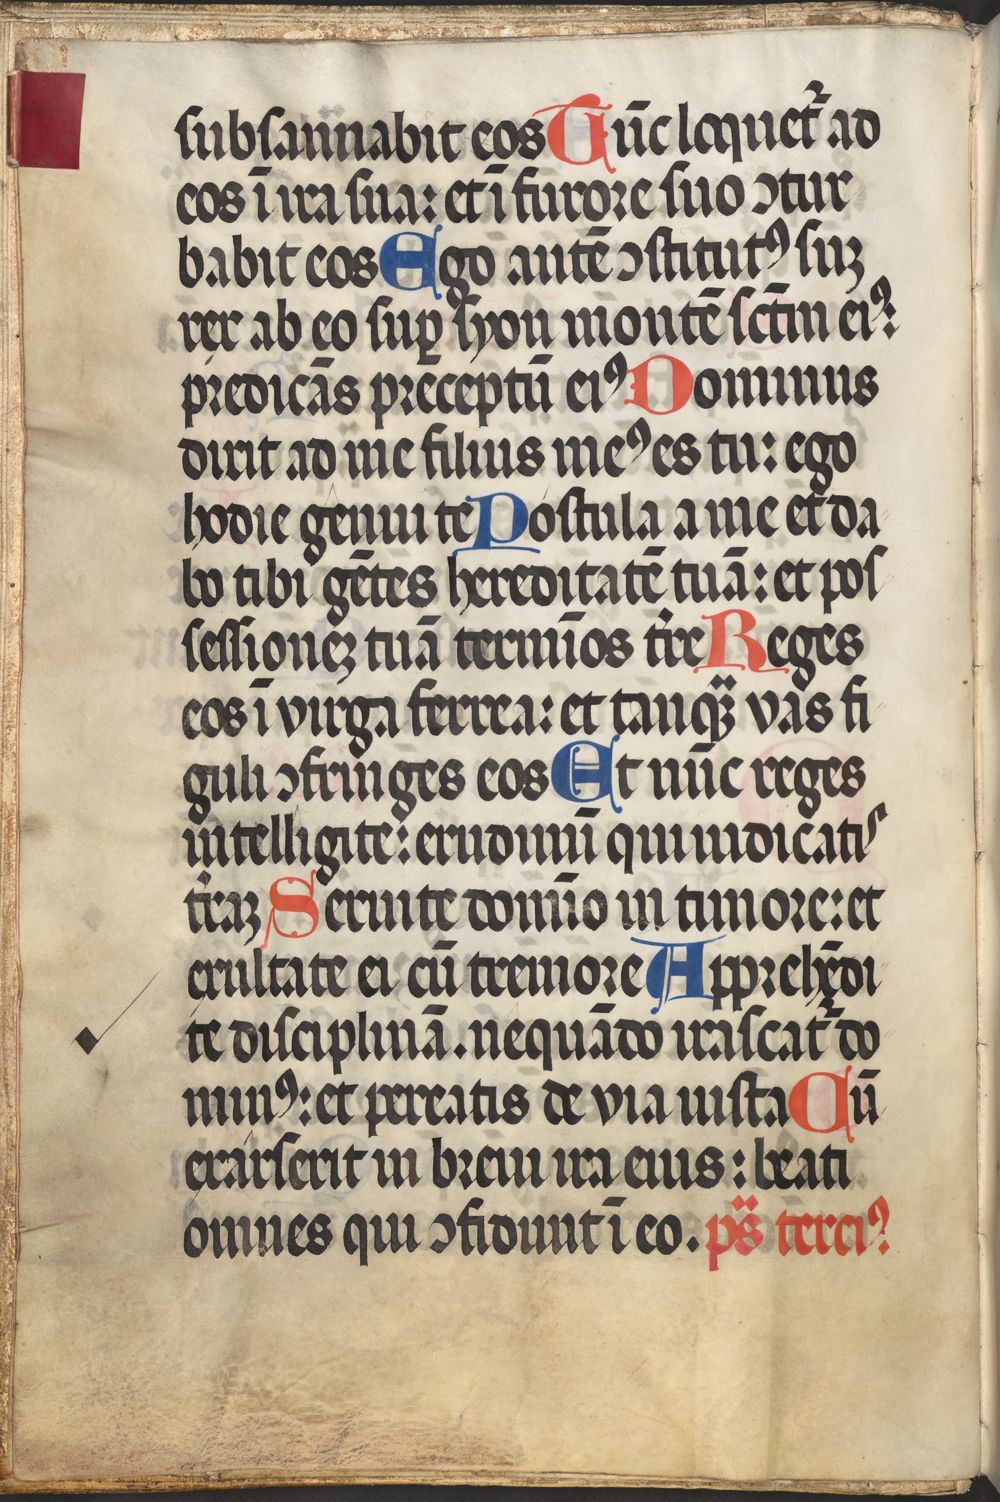 subsannabit eos Tūc loquet᷑ ad
eos ī ira sua: et ī furore suo ↄtur
babit eos Ego autē ↄstitutꝰ suꝫ
rex ab eo suꝑ syon montē sc̄tm eiꝰ:
predicās p̄ceptū eiꝰ Dominus
dixit ad me filius meꝰ es tu: ego
hodie genui te Postula a me et da
bo tibi gētes hereditatē tuā: et pos
sessioneꝫ tuā termīos t̄re Reges
eos ī virga ferrea: et tanqꝫ vas fi
guli ↄfringes eos Et nūc reges
intelligite: erudimī qui iudicatis
t̄raꝫ Seruite domīo in timore: et
exultate ei cū tremore Apprehēdi
te disciplinā. nequādo irascat᷑ do
minꝰ: et pereatis de via iusta Cū
exarserit in breui ira eius: beati
omnes qui ↄfidunt ī eo. ps̄ terciꝰ